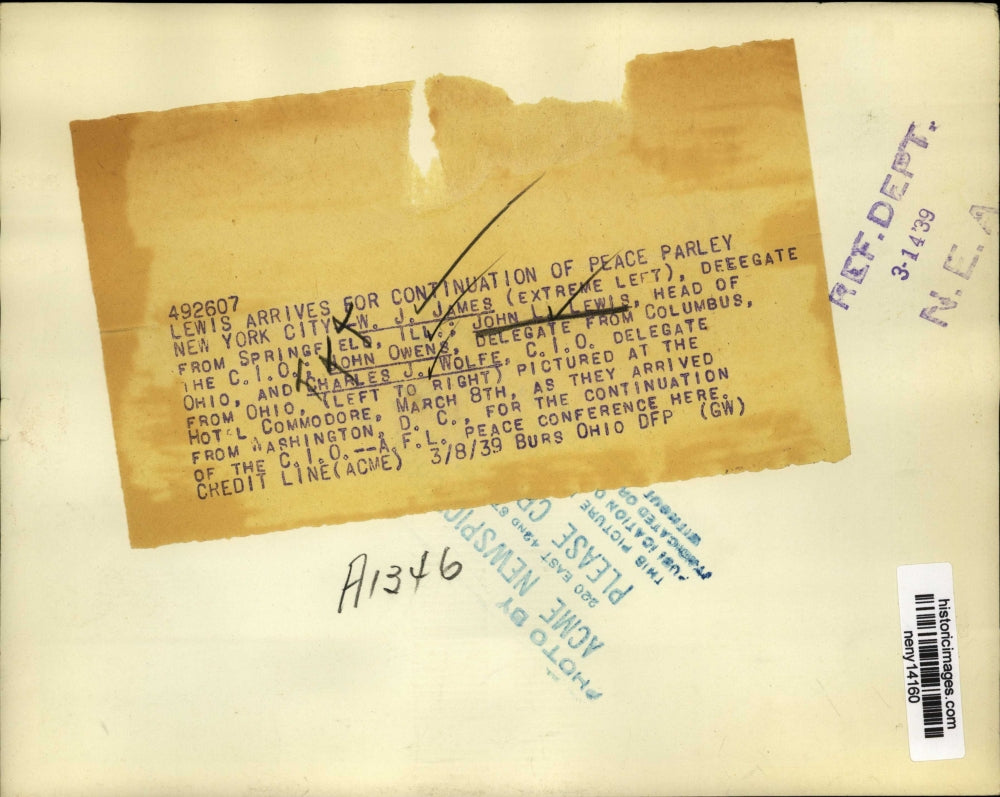 492607
LEWIS ARRIVES FOR CONTINUATION OF PEACE PARLEY
NEW YORK CITY--W. J. JAMES (EXTREME LEFT), DELEGATE
FROM SPRINGFIELD, ILL.; JOHN L. LEWIS, HEAD OF
THE C.I.O.; JOHN OWENS, DELEGATE FROM COLUMBUS,
OHIO, AND CHARLES J. WOLFE, C.I.O. DELEGATE
FROM OHIO, (LEFT TO RIGHT) PICTURED AT THE
HOTEL COMMODORE, MARCH 8TH, AS THEY ARRIVED
FROM WASHINGTON, D. C., FOR THE CONTINUATION
OF THE C.I.O.--A.F.L. PEACE CONFERENCE HERE.
CREDIT LINE(ACME) 3/8/39 BURS OHIO DFP (GW)
REF. DEPT.
3-14'39
N.E.A
A1346
PHOTO BY
ACME NEWSPIC
220 EAST 42ND ST
PLEASE CR
THIS PICTURE
PUBLICATION O
OR
WITHOUT
historicimages.com
neny14160